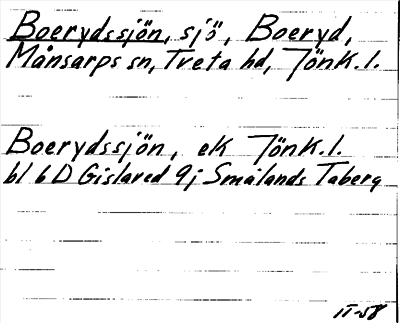 Boerydssjön, sjö, Boeryd,
Månsarps sn, Tveta hd, Jönk. l.
Boerydssjön, ek Jönk. l.
bl 6 D Gislaved 9j Smålands Taberg
II-58